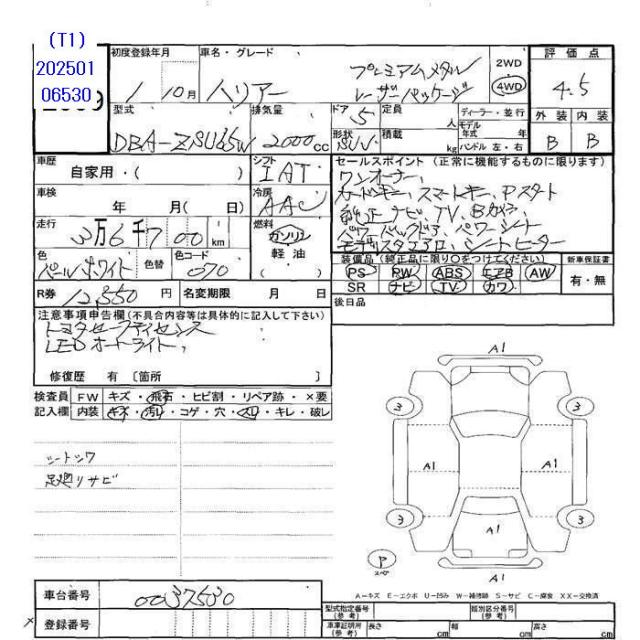 (T1)
202501
06530
初度登録年月 車名・グレード プレミアムメタル 2WD 評価点
1 10月 ハリアー レザーパッケージ 4WD 4.5
型式 排気量 ドア 5 定員 人 ディーラー・並行 外装 内装
DBA-ZSU65W 2000cc 形状 SUV 積載 kg モデル年式 年 ハンドル 左・右 B B
車歴 自家用・( ) シフト IAT セールスポイント (正常に機能するものに限ります)
ワンオーナー、
車検 年 月( 日) 冷房 AAC スマートキー、Pスタート
純正ナビ、TV、Bカメラ
走行 3万6千700km 燃料 ガソリン 軽油 パワーバックドア、パワーシート
モデリスタエアロ、シートヒーター
色 パールホワイト 色替 色コード 070 装備品 (純正品に限り○をつけてください) 新車保証書
PS RW ABS エアB AW 有・無
SR ナビ TV カワ
R券 12,550円 名変期限 月 日 後日品
注意事項申告欄 (不具合内容等は具体的に記入して下さい)
トヨタセーフティセンス
LEDオートライト、
修復歴 有 〔箇所 〕
検査員 FW キズ・飛石・ヒビ割・リペア跡・×要
記入欄 内装 キズ・汚れ・コゲ・穴・スレ・キレ・破レ
シートシワ
足廻りサビ
A1
3 3
A1 A1
3 3
A1
P スペア
A1
A-キズ E-エクボ U-凹み W-補修跡 S-サビ C-腐食 XX-交換済
車台番号 0037530
登録番号
型式指定番号 (参考) 類別区分番号 (参考)
車庫証明用 (参考) 長さ cm 幅 cm 高さ cm